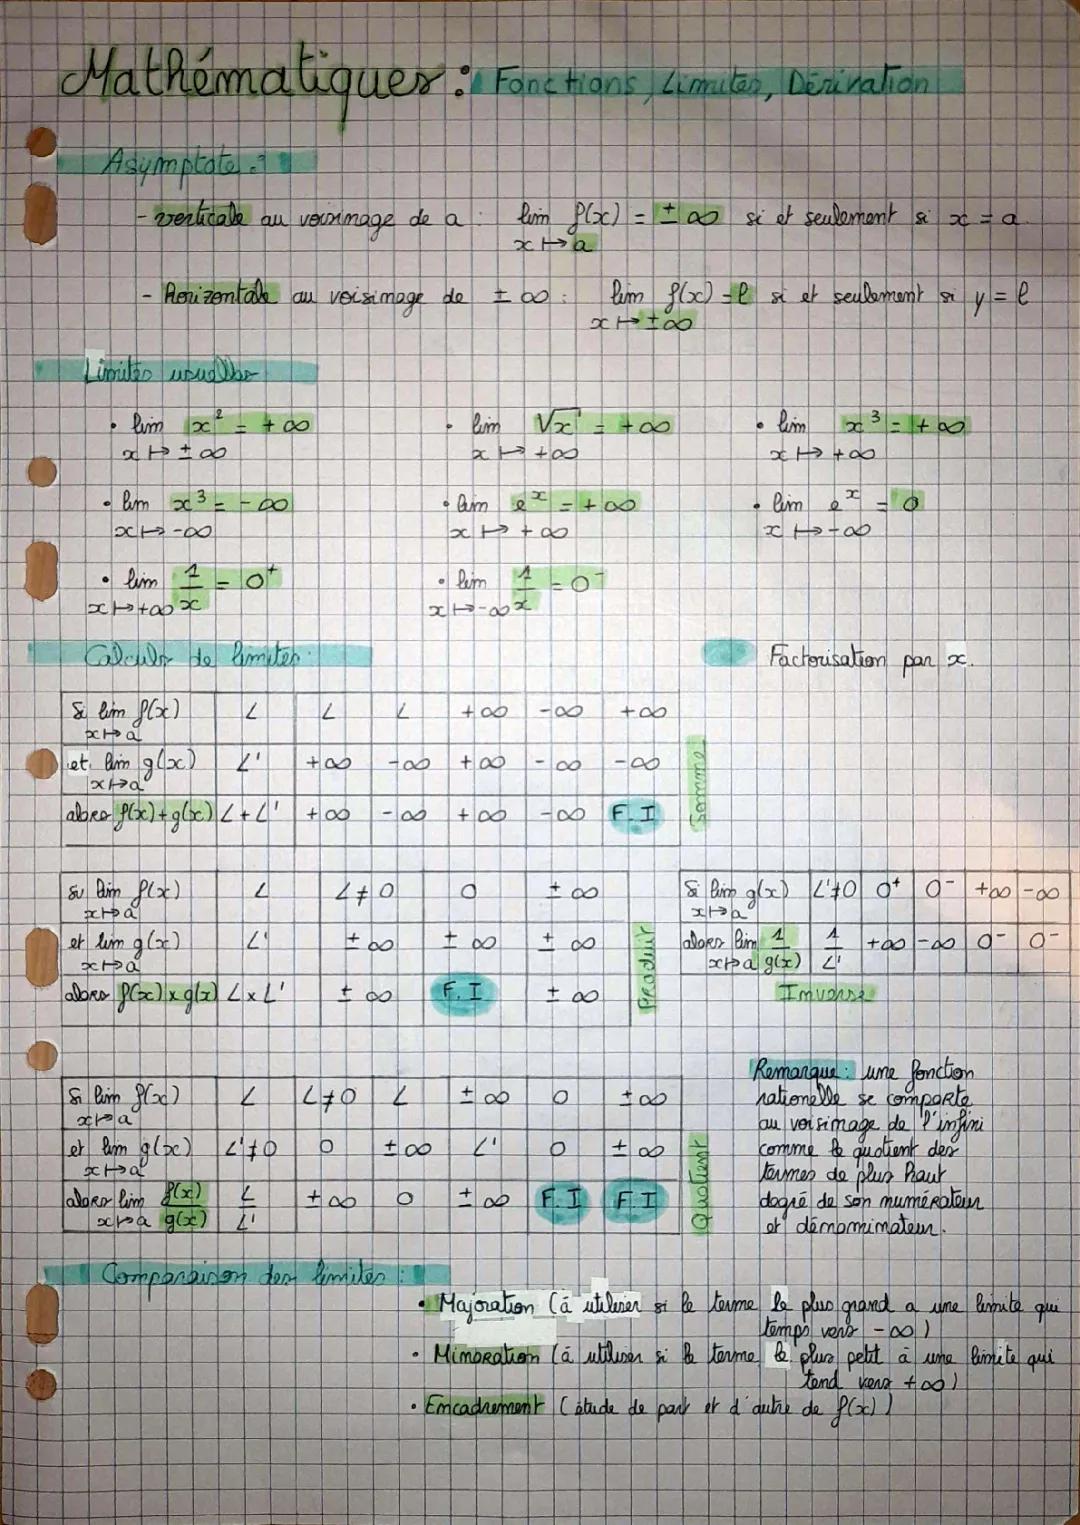 Mathématiques : Fonctions, Limites, Dérivation
Asymptote :
- verticale au voisinage de a : lim f(x) = ± ∞ si et seulement si x = a
x ↦ a
- Horizontale au voisimage de ± ∞ : lim f(x) = l si et seulement si y = l
x ↦ ± ∞
Limites usuelles
• lim x² = + ∞ • lim √x = + ∞ • lim x³ = + ∞
x ↦ ± ∞ x ↦ +∞ x ↦ +∞
• lim x³ = - ∞ • lim eˣ = + ∞ • lim eˣ = 0
x ↦ -∞ x ↦ + ∞ x ↦ -∞
• lim 1/x = 0⁺ • lim 1/x = 0⁻
x ↦ +∞ x ↦ -∞
Calculs de limites : Factorisation par x.
Si lim f(x) L L L +∞ -∞ +∞
x ↦ a
et lim g(x) L' +∞ -∞ +∞ -∞ -∞
x ↦ a
alors f(x)+g(x) L+L' +∞ -∞ +∞ -∞ F.I
Somme
Si lim f(x) L L≠0 0 ± ∞
x ↦ a
et lim g(x) L' ± ∞ ± ∞ ± ∞
x ↦ a
alors f(x) x g(x) L x L' ± ∞ F.I ± ∞
Produit
Si lim g(x) L'≠0 0⁺ 0⁻ +∞ -∞
x ↦ a
alors lim 1/g(x) 1/L' +∞ -∞ 0⁻ 0⁻
x ↦ a
Inverse
Si lim f(x) L L≠0 L ± ∞ 0 ± ∞
x ↦ a
et lim g(x) L'≠0 0 ± ∞ L' 0 ± ∞
x ↦ a
alors lim f(x)/g(x) L/L' ± ∞ 0 ± ∞ F.I F.I
x ↦ a
Quotient
Remarque : une fonction
rationelle se comporte
au voisimage de l'infini
comme le quotient des
termes de plus haut
degré de son numérateur
et dénominateur.
Comparaison des limites :
• Majoration (à utiliser si le terme le plus grand a une limite qui
temps vers -∞)
• Minoration (à utiliser si le terme le plus petit à une limite qui
tend vers +∞)
• Encadrement (étude de part et d'autre de f(x))